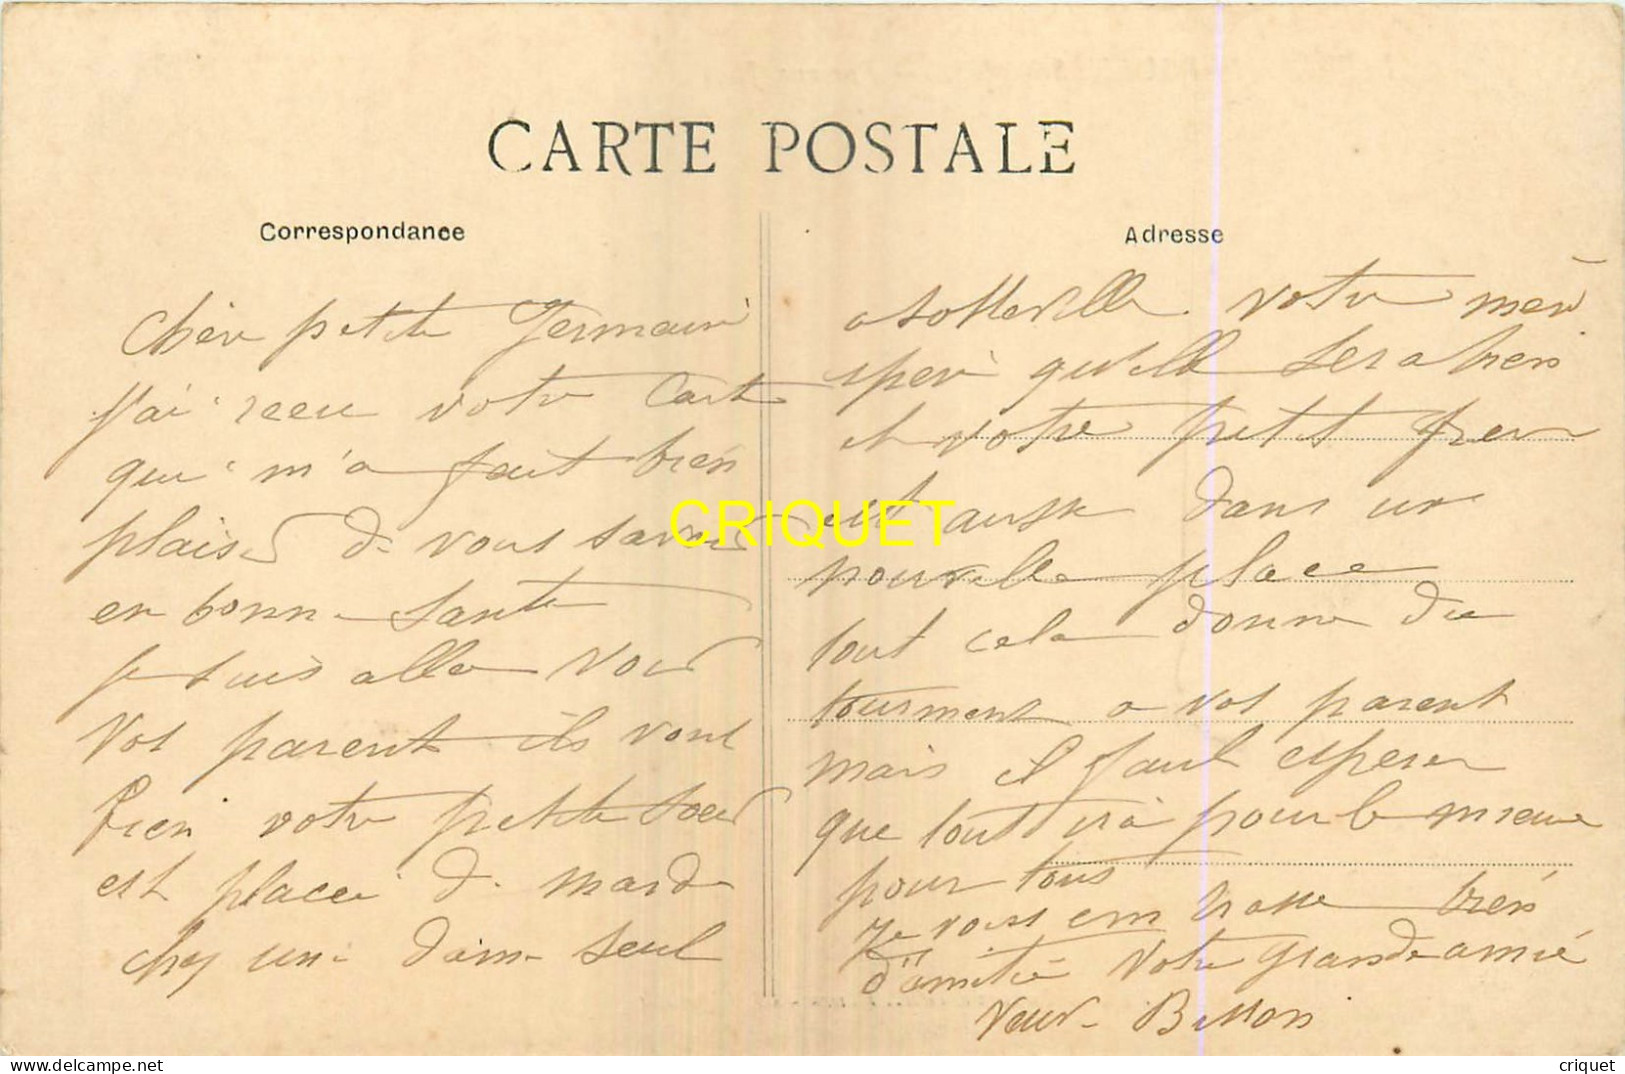 CARTE POSTALE
Correspondance
Chère petite Germain
J'ai recu votre Cart
qui m'a fait bien
plaisir de vous savoir
en bonne santé
je suis allé voir
vos parent ils vont
bien votre petite soeur
est placer de mardi
chez une dame seul
Adresse
a sotteville votre mère
espère qu'elle sera bien
et votre petit frere
est aussi dans un
nouvelle place
tout cela donne du
tourment a vos parent
mais il faut esperer
que tout ira pour le mieux
pour tous
je vous embrasse bien
d'amitié votre grande amie
Veuve
CRIQUET
criquet